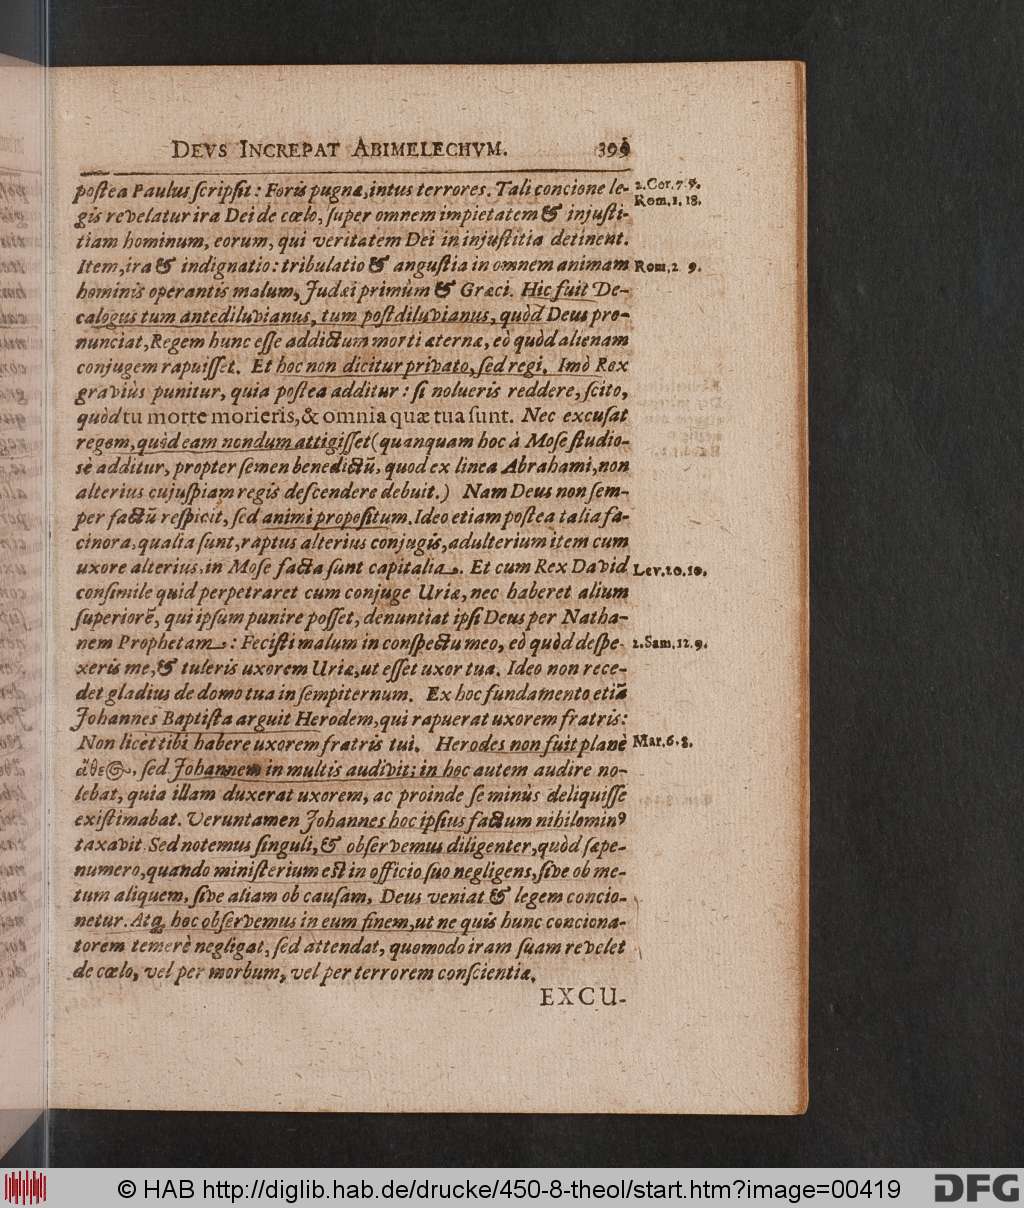 DEVS INCREPAT ABIMELECHVM. 399
postea Paulus scripsit: Foris pugnæ, intus terrores. Tali concione le- 2. Cor. 7. 5.
gis revelatur ira Dei de cœlo, super omnem impietatem & injusti- Rom. 1. 18.
tiam hominum, eorum, qui veritatem Dei in injustitia detinent.
Item, ira & indignatio: tribulatio & angustia in omnem animam Rom. 2 9.
hominis operantis malum, Judæi primùm & Græci. Hic fuit De-
calogus tum antediluvianus, tum postdiluvianus, quòd Deus pro-
nunciat, Regem hunc esse addictum morti æternæ, eò quòd alienam
conjugem rapuisset. Et hoc non dicitur privato, sed regi. Imò Rex
graviùs punitur, quia postea additur: si nolueris reddere, scito,
quòd tu morte morieris, & omnia quæ tua sunt. Nec excusat
regem, quòd eam nondum attigisset (quanquam hoc à Mose studio-
sè additur, propter semen benedictũ, quod ex linea Abrahami, non
alterius cujuspiam regis descendere debuit.) Nam Deus non sem-
per factũ respicit, sed animi propositum. Ideo etiam postea talia fa-
cinora, qualia sunt, raptus alterius conjugis, adulterium item cum
uxore alterius, in Mose facta sunt capitalia. Et cum Rex David Lev. 20. 10.
consimile quid perpetraret cum conjuge Uriæ, nec haberet alium
superiorẽ, qui ipsum punire posset, denuntiat ipsi Deus per Natha-
nem Prophetam: Fecisti malum in conspectu meo, eò quòd despe- 2. Sam. 12. 9.
xeris me, & tuleris uxorem Uriæ, ut esset uxor tua. Ideo non rece-
det gladius de domo tua in sempiternum. Ex hoc fundamento etiã
Johannes Baptista arguit Herodem, qui rapuerat uxorem fratris:
Non licèt tibi habere uxorem fratris tui. Herodes non fuit planè Mar. 6. 8.
ἄθεος, sed Johannem in multis audivit; in hoc autem audire no-
lebat, quia illam duxerat uxorem, ac proinde se minùs deliquisse
existimabat. Veruntamen Johannes hoc ipsius factum nihilominꝰ
taxavit. Sed notemus singuli, & observemus diligenter, quòd sæpe-
numero, quando ministerium est in officio suo negligens, sive ob me-
tum aliquem, sive aliam ob causam, Deus veniat & legem concio-
netur. Atq; hoc observemus in eum finem, ut ne quis hunc conciona-
torem temerè negligat, sed attendat, quomodo iram suam revelet
de cœlo, vel per morbum, vel per terrorem conscientiæ.
EXCU-
© HAB http://diglib.hab.de/drucke/450-8-theol/start.htm?image=00419
DFG